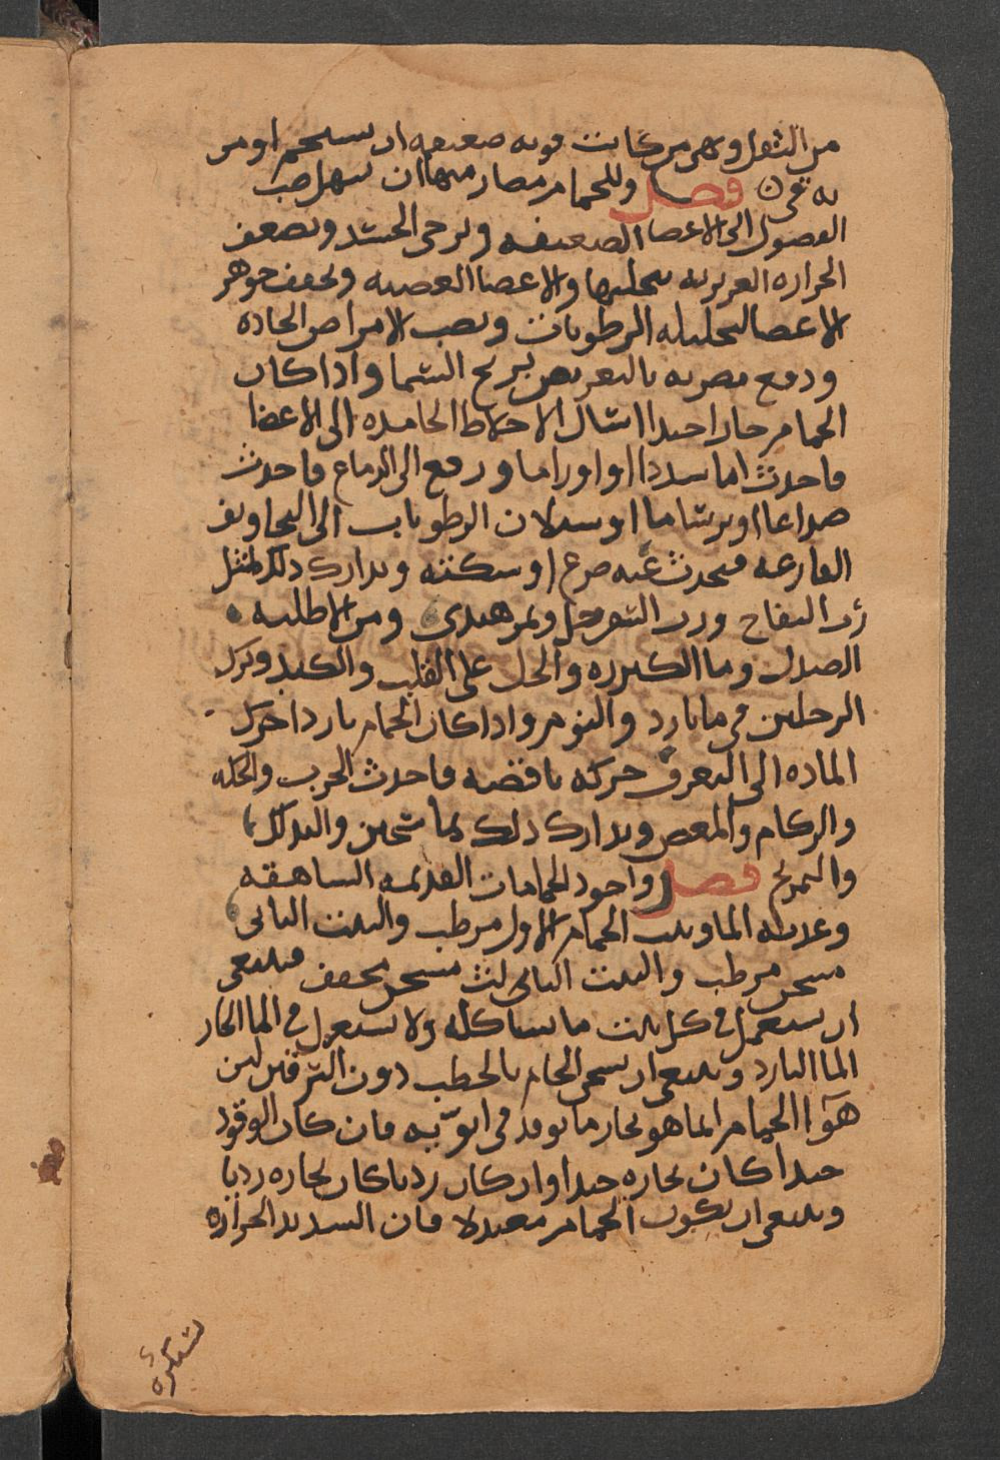 من الثفل وهي من كانت قوته ضعيفه ان يستحم او من
به قي ٥ فصل وللحمام مضار منها ان يسهل صب
الفضول الى الاعضا الضعيفه ويرخي الجسد ويضعف
الحراره الغريزيه بتحليلها والاعضا العصبيه ويجفف جوهر
الاعضا لتحليله الرطوبات ويصب الامراض الحاده
ودفع مضرته بالتعريض بريح الشما واذا كان
الحمام حارا جدا اسال الاخلاط الجامده الى الاعضا
فاحدث اما سددا او اوراما ورفع الى الدماغ فاحدث
صداعا او برساما او سيلان الرطوبات الى التجاويف
الفارغه فيحدث عنه صرع او سكته ويدارك ذلك بمثل
رب التفاح ورب السفرجل وتمر هندي ومن الاطليه
الصندل وما الكزبره والخل على القلب والكبد وترك
الرجلين في ما بارد والنوم واذا كان الحمام باردا حرك
الماده الى التعرق حركه ناقصه فاحدث الجرب والحكه
والزكام والمغص ويدارك ذلك بما سخن والتدلك
والتمريخ فصل واجود الحمامات القديمه الشاهقه
وعذبه الما وبيت الحمام الاول مرطب والبيت الثاني
مسخن مرطب والبيت الثالث مسخن مجفف فينبغي
ان يستعمل في كل بيت ما يشاكله ولا يستعمل في الما الحار
الما البارد وينبغي ان يسخن الحمام بالحطب دون السرقين لان
هوا الحمام انما هو بخار ما يوقد في اتونه فان كان الوقود
جيدا كان بخاره جيدا وان كان رديا كان بخاره رديا
وينبغي ان يكون الحمام معتدلا فان الشديد الحراره